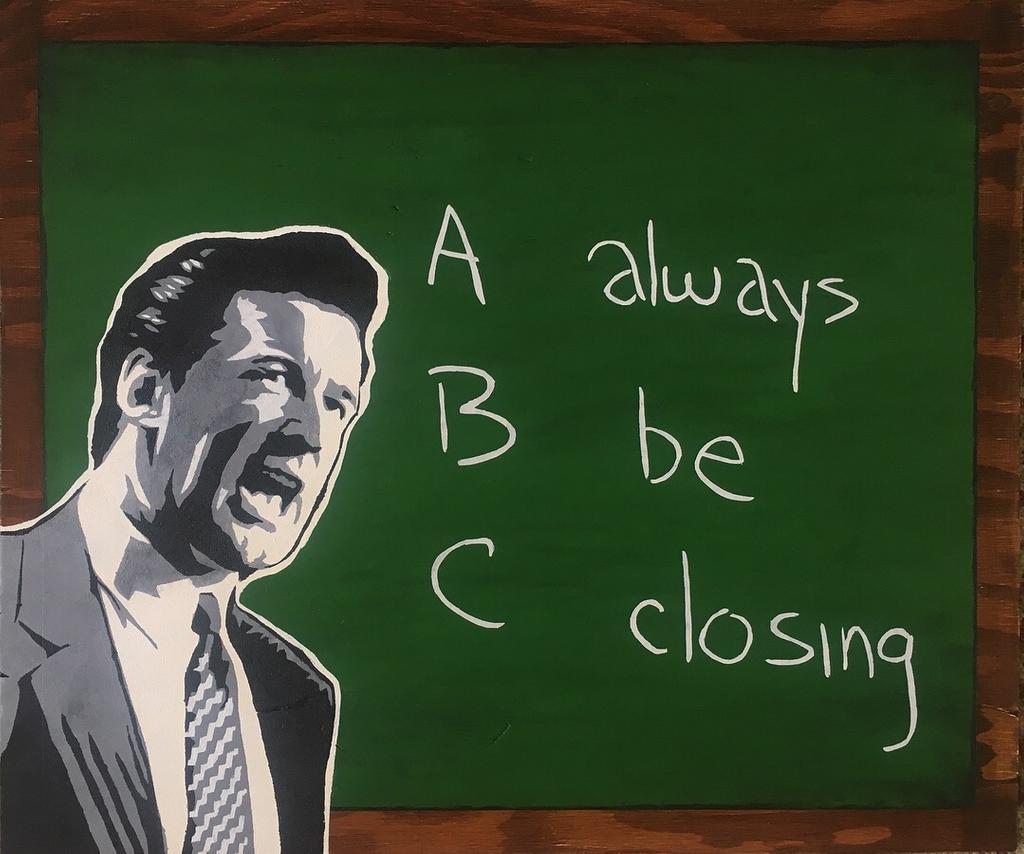 A always
B be
C closing